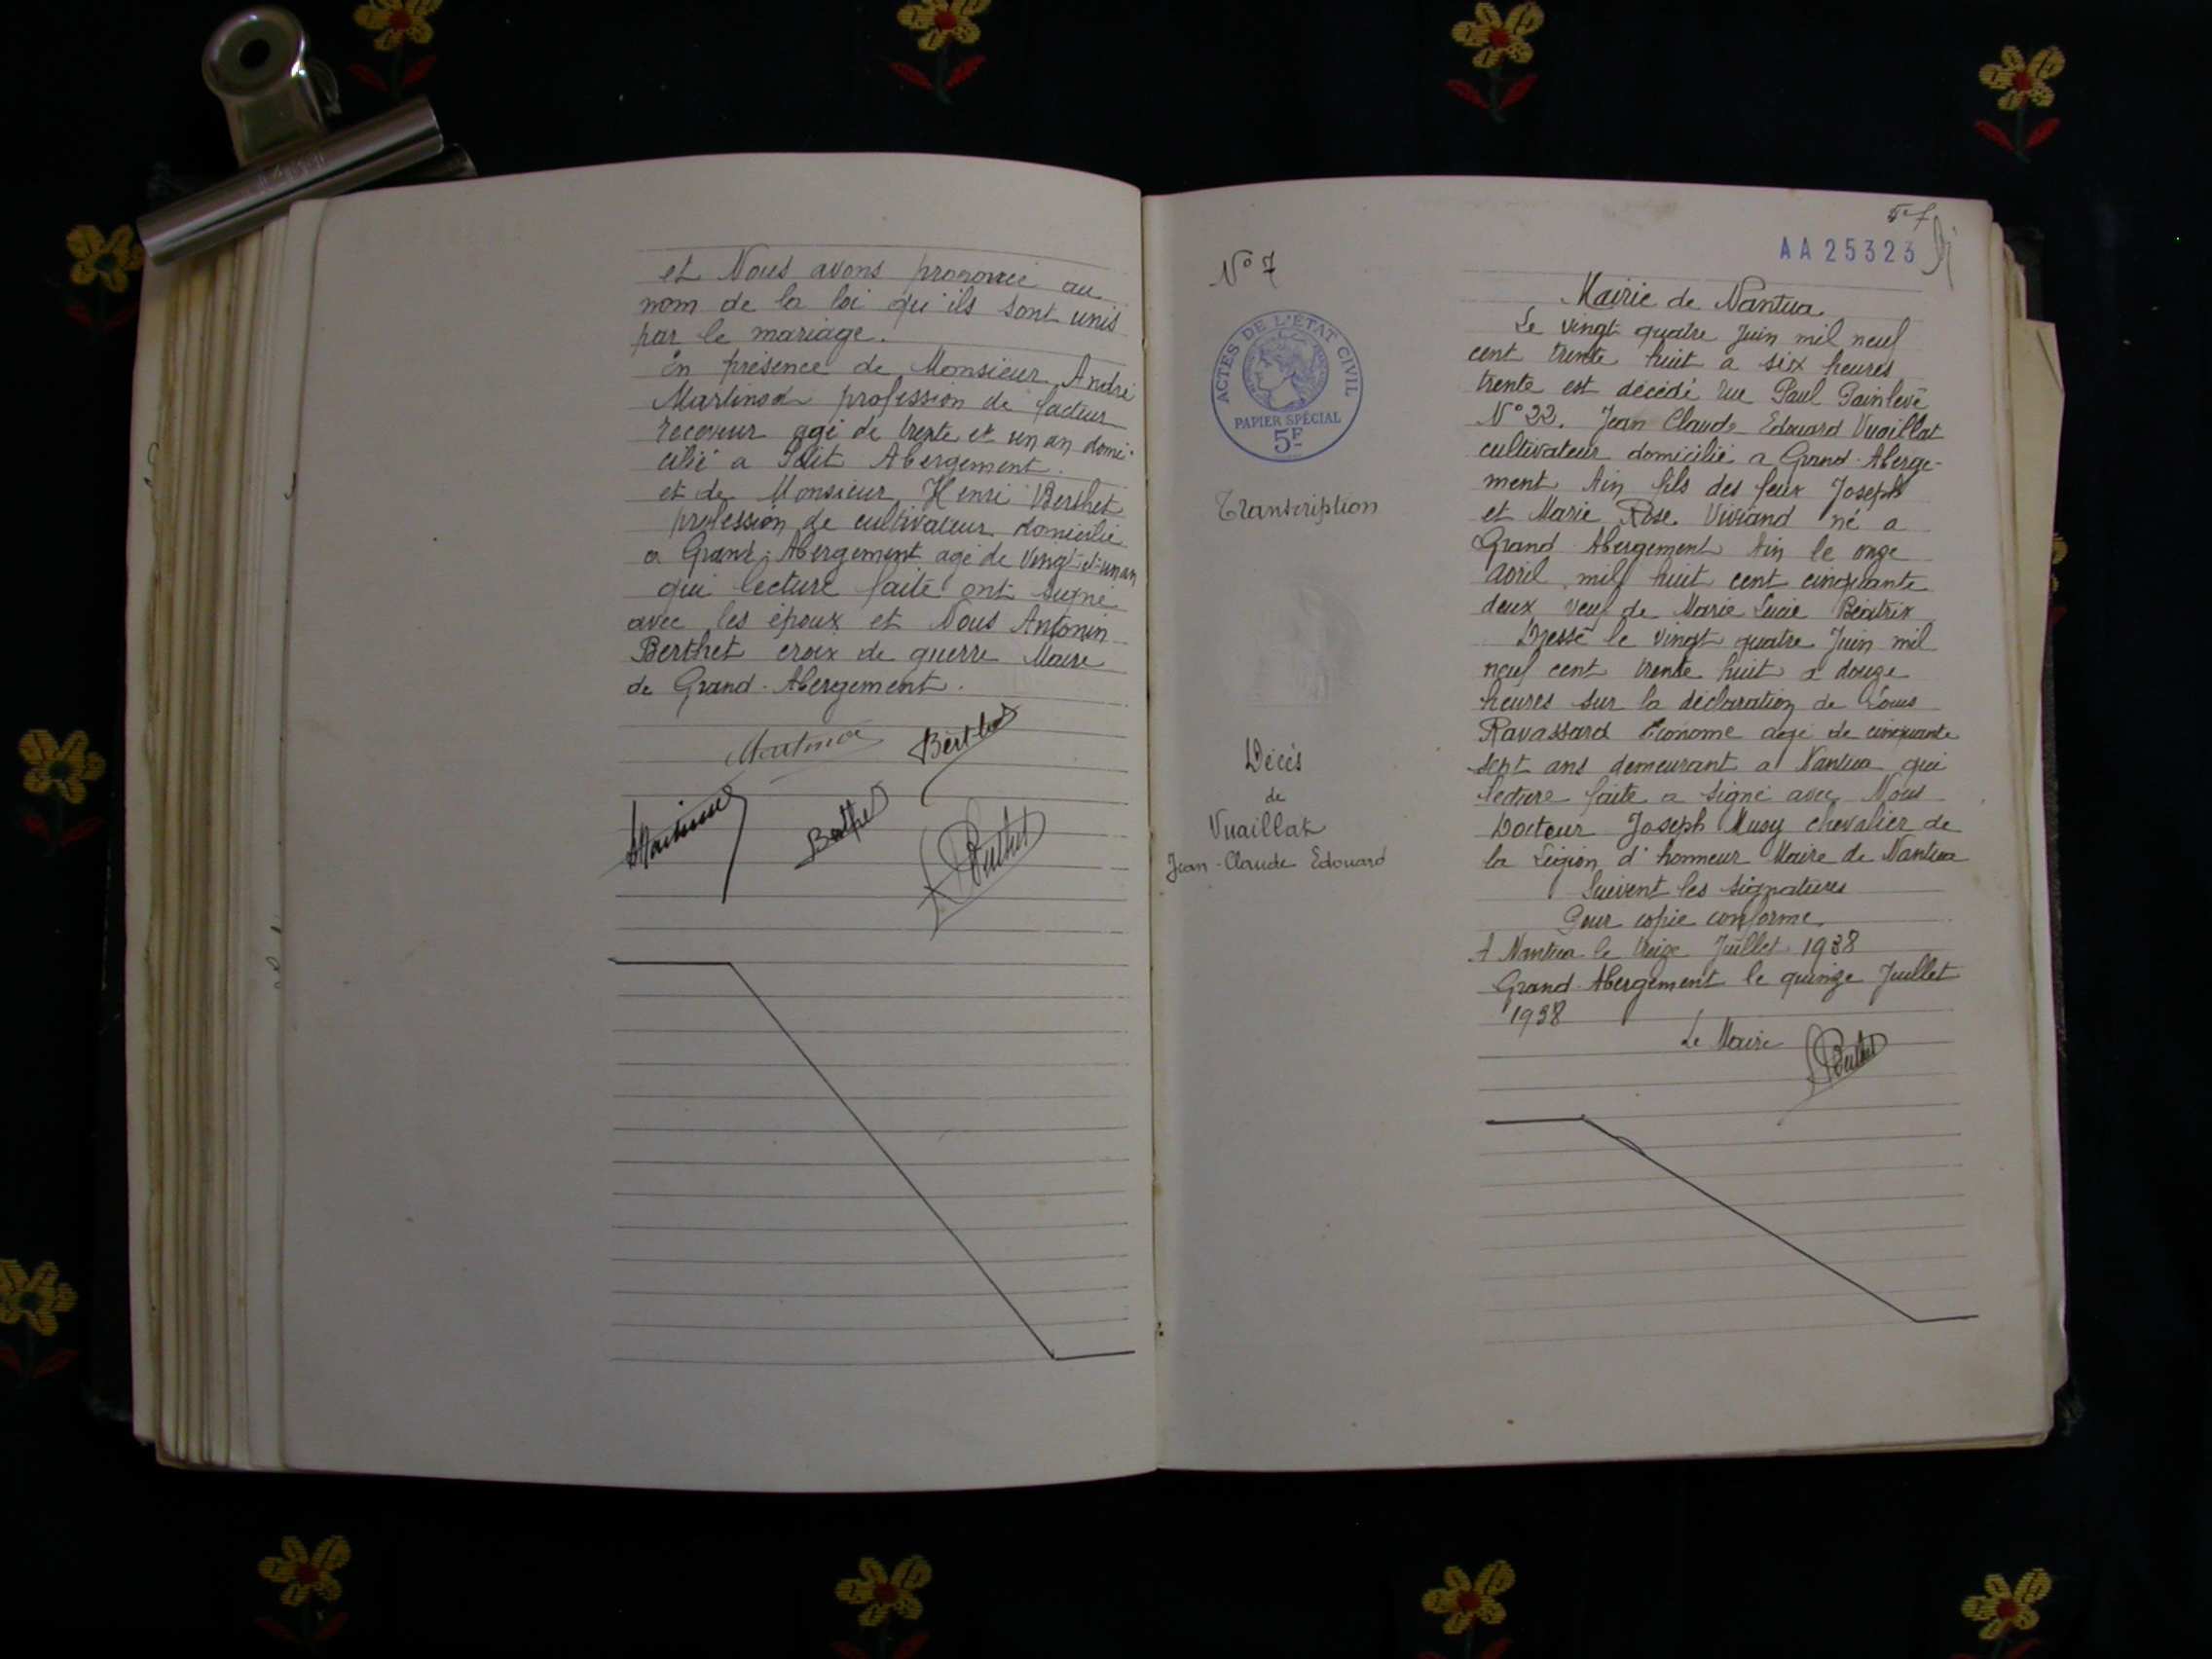 et Nous avons prononcé au
nom de la loi qu'ils sont unis
par le mariage.
En présence de Monsieur André
Martinod profession de facteur
receveur agé de trente et un an domi-
cilié a Petit Abergement.
et de Monsieur Henri Berthet
profession de cultivateur domicilié
a Grand-Abergement agé de vingt-et-un an
qui lecture faite ont signé
avec les époux et Nous Antonin
Berthet croix de guerre Maire
de Grand-Abergement.
Martinod Berthet
Berthet Berthet
N° 7
ACTES DE L'ÉTAT CIVIL
PAPIER SPÉCIAL
5F
Transcription
Décès
de
Vuaillat
Jean-Claude Edouard
57
AA 25323
Mairie de Nantua
Le vingt quatre Juin mil neuf
cent trente huit a six heures
trente est décédé rue Paul Painlevé
N° 22. Jean Claude Edouard Vuaillat
cultivateur domicilié a Grand-Aberge-
ment Ain fils des feux Joseph
et Marie Rose Viviand né a
Grand Abergement Ain le onze
avril mil huit cent cinquante
deux veuf de Marie Lucie Béatrix
Dressé le vingt quatre Juin mil
neuf cent trente huit a douze
heures sur la déclaration de Louis
Ravassard Econome agé de cinquante
sept ans demeurant a Nantua qui
lecture faite a signé avec Nous
Docteur Joseph Musy chevalier de
la Légion d'honneur Maire de Nantua
Suivent les signatures
Pour copie conforme
A Nantua le treize Juillet 1938
Grand-Abergement le quinze Juillet
1938
Le Maire Berthet